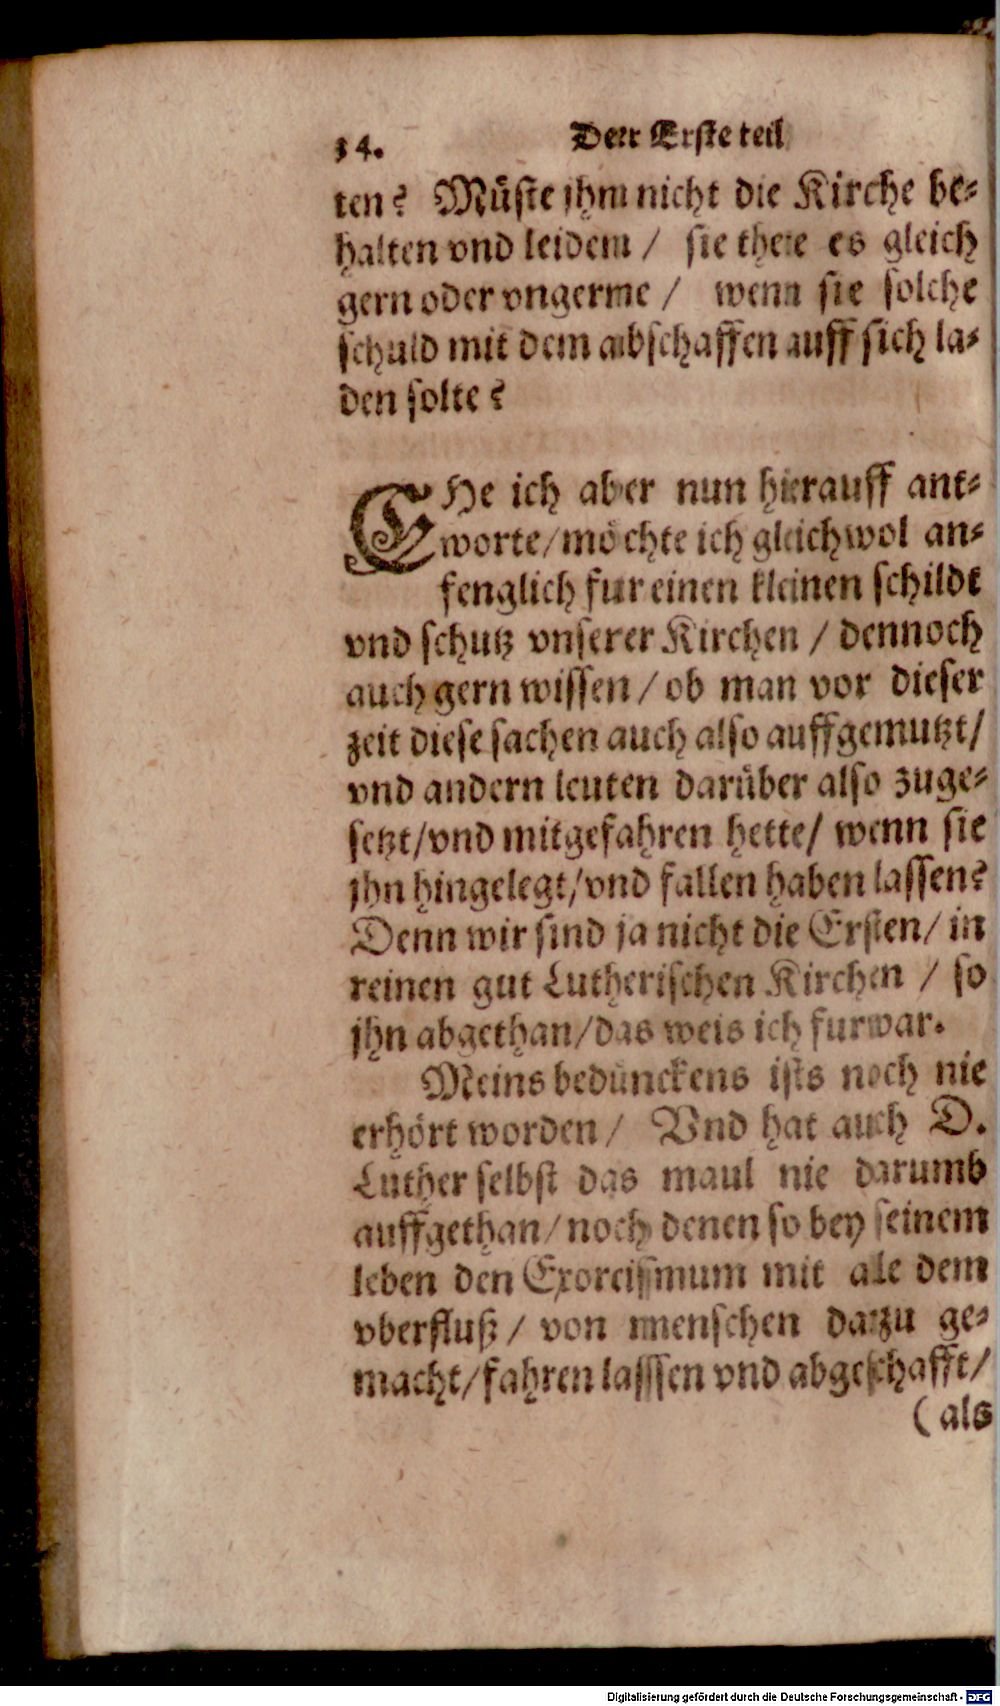 34. Der Erste teil
ten? Müste jhm nicht die Kirche be-
halten vnd leiden / sie thete es gleich
gern oder vngerne / wenn sie solche
schuld mit dem abschaffen auff sich la-
den solte?
EHe ich aber nun hierauff ant-
worte/möchte ich gleichwol an-
fenglich fur einen kleinen schildt
vnd schutz vnserer Kirchen / dennoch
auch gern wissen / ob man vor dieser
zeit diese sachen auch also auffgemutzt/
vnd andern leuten darüber also zuge-
setzt/vnd mitgefahren hette/ wenn sie
jhn hingelegt/vnd fallen haben lassen?
Denn wir sind ja nicht die Ersten/ in
reinen gut Lutherischen Kirchen / so
jhn abgethan/das weis ich furwar.
Meins bedünckens ists noch nie
erhört worden / Vnd hat auch D.
Luther selbst das maul nie darumb
auffgethan/noch denen so bey seinem
leben den Exorcissmum mit alle dem
vberfluß / von menschen darzu ge-
macht/fahren lasssen vnd abgeschafft/
(als
Digitalisierung gefördert durch die Deutsche Forschungsgemeinschaft - DFG